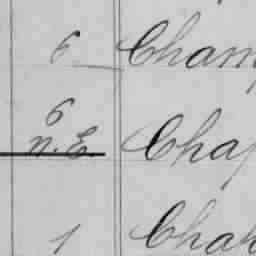 6 Cham
6
N.E. Cha
1 Cha